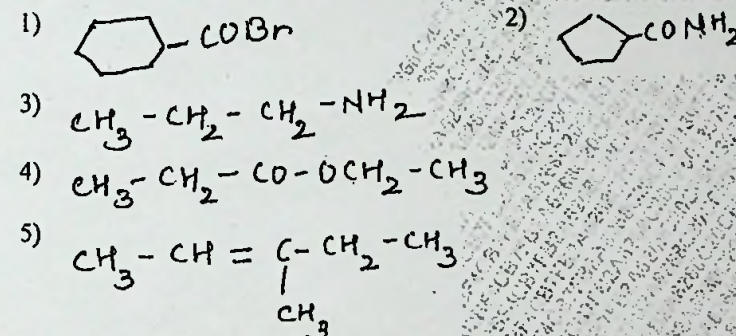 1) COBr
2) CONH₂
3) CH₃-CH₂-CH₂-NH₂
4) CH₃-CH₂-CO-OCH₂-CH₃
5) CH₃-CH=C-CH₂-CH₃
CH₃